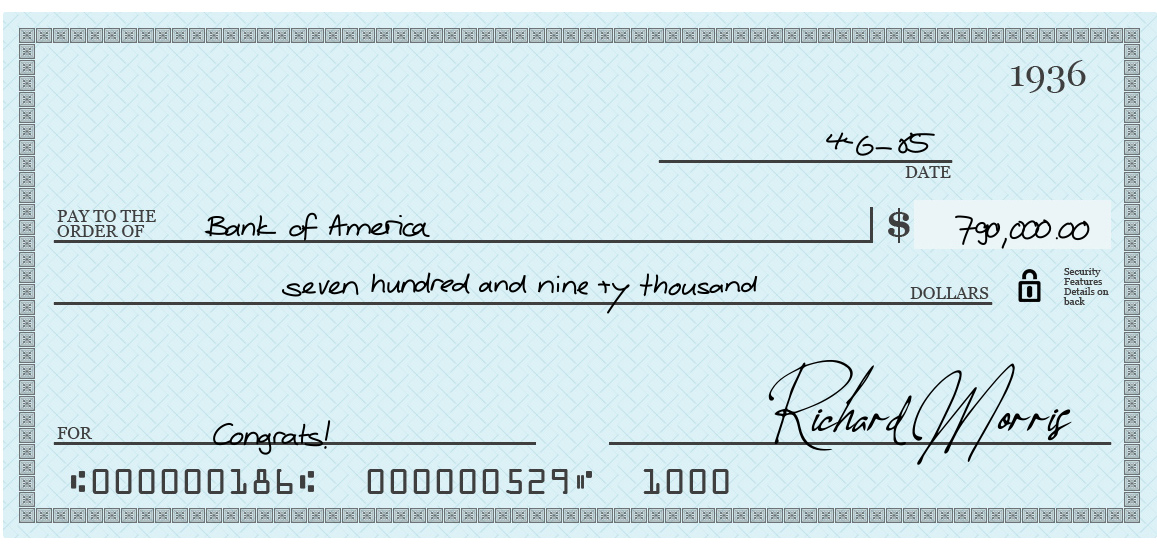 1936
4-6-85
DATE
PAY TO THE
ORDER OF Bank of America $ 790,000.00
seven hundred and nine ty thousand DOLLARS
Security
Features
Details on
back
FOR Congrats! Richard Morris
⑆000000186⑆ 000000529⑈ 1000